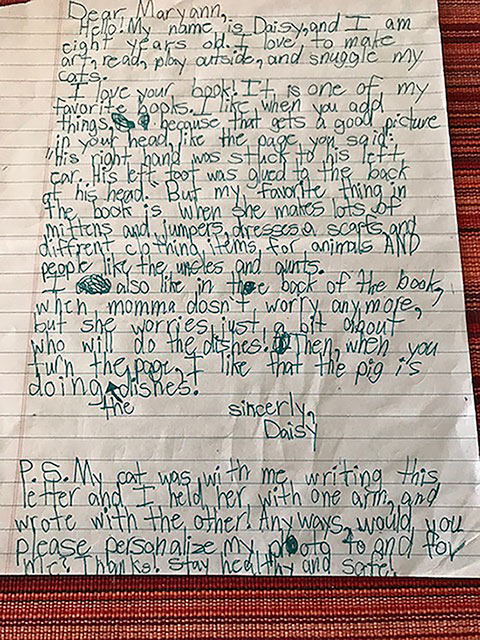 Dear Maryann,
Hello! My name is Daisy, and I am
eight years old. I love to make
art, read, play outside, and snuggle my
cats.
I love your book! It is one of my
favorite books. I like when you add
things, because that gets a good picture
in your head, like the page you said:
"His right hand was stuck to his left
ear. His left foot was glued to the back
of his head." But my favorite thing in
the book is when she makes lots of
mittons and jumpers, dresses, a scarts, and
diffrent clothing items, for animals AND
people like the uncles and aunts.
I also like in the back of the book,
when momma dosn't worry any more,
but she worries just a bit about
who will do the dishes. Then, when you
turn the page, I like that the pig is
doing dishes.
the
sincerly,
Daisy
P.S. My cat was with me writing this
letter and I held her with one arm, and
wrote with the other! Any ways, would you
please personalize my photo to and for
me? Thanks! stay healthy and safe!